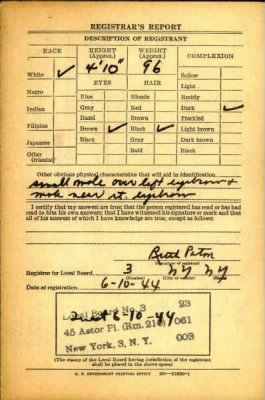 REGISTRAR'S REPORT
DESCRIPTION OF REGISTRANT
RACE HEIGHT (Approx.) WEIGHT (Approx.) COMPLEXION
4'10" 96
White ✓ EYES HAIR Sallow
Light
Negro Blue Blonde Ruddy
Indian Gray Red Dark ✓
Hazel Brown Freckled
Filipino Brown ✓ Black ✓ Light brown
Japanese Black Gray Dark brown
Other Oriental Bald Black
Other obvious physical characteristics that will aid in identification
small mole over left eyebrow &
mole near rt. eyebrow
I certify that my answers are true; that the person registered has read or has had
read to him his own answers; that I have witnessed his signature or mark and that
all of his answers of which I have knowledge are true, except as follows:
(Signature of registrar)
Registrar for Local Board 3 NY NY
(Number)
Date of registration 6-10-44
Local Board No. 3 23
6-10-44
45 Astor Pl. (Rm. 210) 061
New York, 3, N. Y. 003
(The stamp of the Local Board having jurisdiction of the registrant
shall be placed in the above space)
U. S. GOVERNMENT PRINTING OFFICE